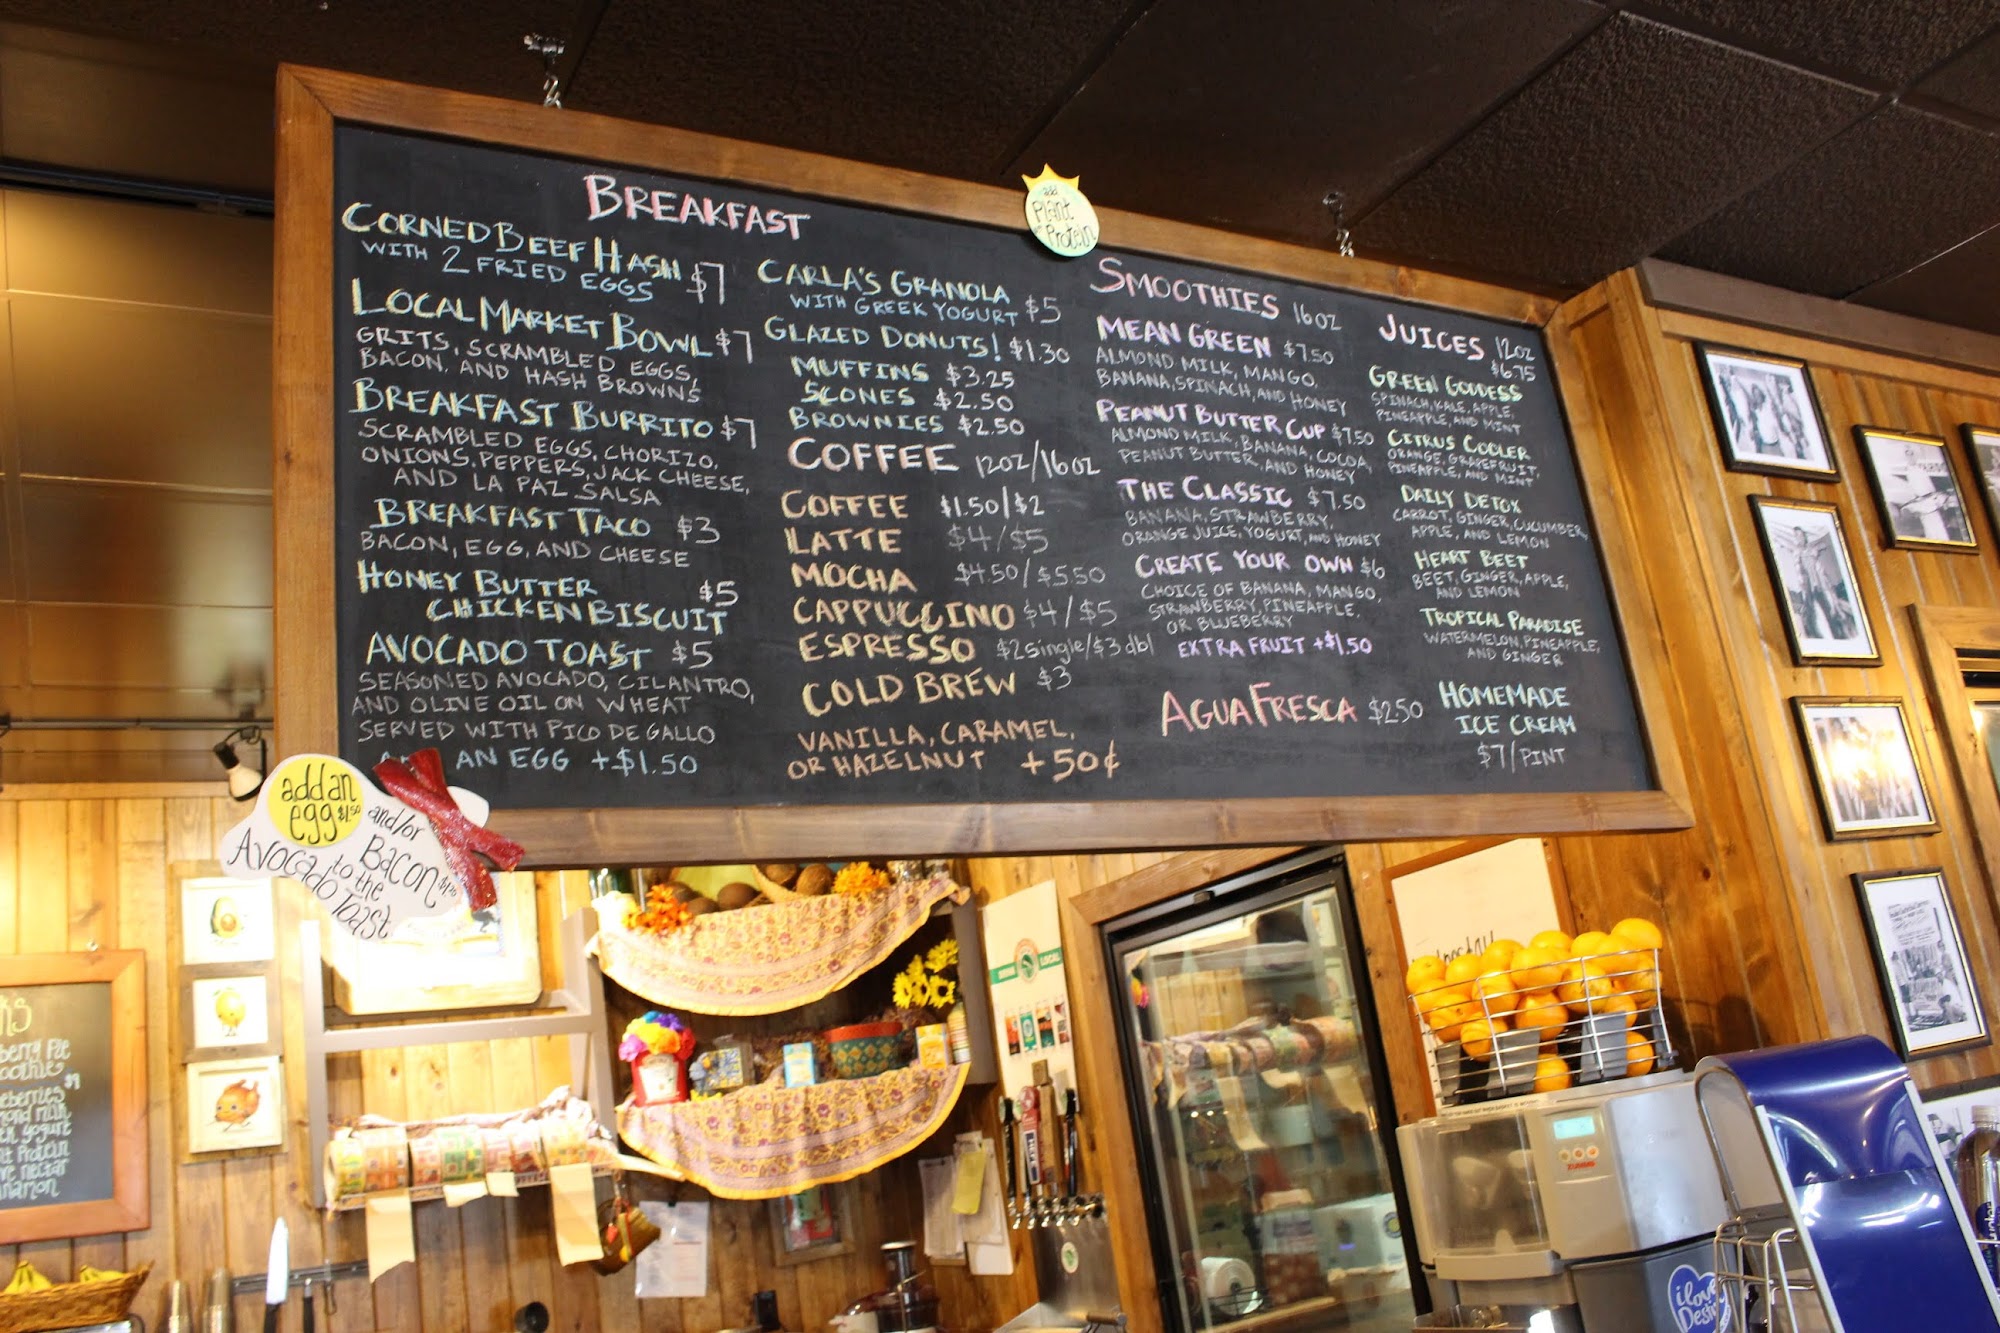 BREAKFAST
CORNED BEEF HASH
WITH 2 FRIED EGGS $7
LOCAL MARKET BOWL $7
GRITS, SCRAMBLED EGGS,
BACON, AND HASH BROWNS
BREAKFAST BURRITO $7
SCRAMBLED EGGS, CHORIZO,
ONIONS, PEPPERS, JACK CHEESE,
AND LA PAZ SALSA
BREAKFAST TACO $3
BACON, EGG, AND CHEESE
HONEY BUTTER $5
CHICKEN BISCUIT
AVOCADO TOAST $5
SEASONED AVOCADO, CILANTRO,
AND OLIVE OIL ON WHEAT
SERVED WITH PICO DE GALLO
AN EGG +$1.50
add an
egg $1.50
and/or
Bacon
to the
Avocado Toast
CARLA'S GRANOLA
WITH GREEK YOGURT $5
GLAZED DONUTS! $1.30
MUFFINS $3.25
SCONES $2.50
BROWNIES $2.50
COFFEE 12OZ/16OZ
COFFEE $1.50/$2
LATTE $4/$5
MOCHA $4.50/$5.50
CAPPUCCINO $4/$5
ESPRESSO $2single/$3dbl
COLD BREW $3
VANILLA, CARAMEL,
OR HAZELNUT +50¢
add
Plant
Protein
SMOOTHIES 16OZ
MEAN GREEN $7.50
ALMOND MILK, MANGO,
BANANA, SPINACH, AND HONEY
PEANUT BUTTER CUP $7.50
ALMOND MILK, BANANA, COCOA,
PEANUT BUTTER, AND HONEY
THE CLASSIC $7.50
BANANA, STRAWBERRY,
ORANGE JUICE, YOGURT, AND HONEY
CREATE YOUR OWN $6
CHOICE OF BANANA, MANGO,
STRAWBERRY, PINEAPPLE,
OR BLUEBERRY
EXTRA FRUIT +$1.50
AGUA FRESCA $2.50
JUICES 12OZ
$6.75
GREEN GODDESS
SPINACH, KALE, APPLE,
PINEAPPLE, AND MINT
CITRUS COOLER
ORANGE, GRAPEFRUIT,
PINEAPPLE, AND MINT
DAILY DETOX
CARROT, GINGER, CUCUMBER,
APPLE, AND LEMON
HEART BEET
BEET, GINGER, APPLE,
AND LEMON
TROPICAL PARADISE
WATERMELON, PINEAPPLE,
AND GINGER
HOMEMADE
ICE CREAM
$7/PINT
LOCAL
ZUMMO
i love